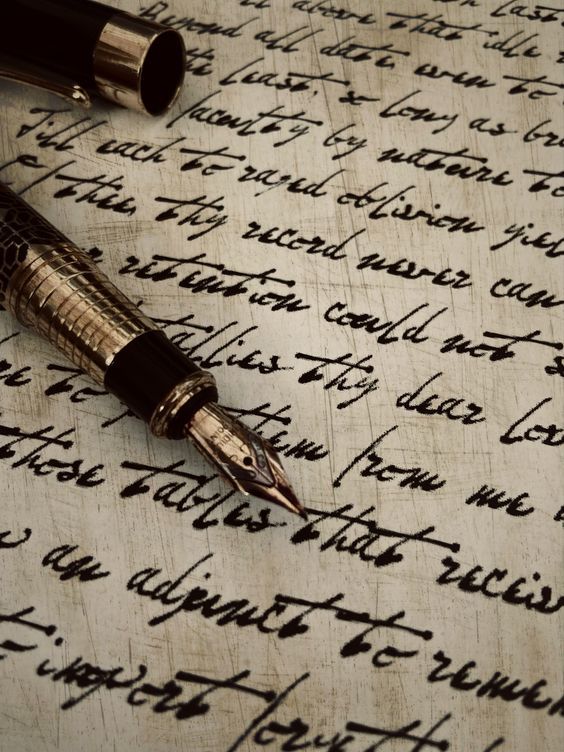 last
ll above that idle
Beyond all date, even to
the least, so long as br
faculty by nature to
Till each to razed oblivion yiel
f thee, thy record never can
retention could not s
tallies thy dear lov
re to them from me
those tables that receiv
an adjunct to remem
to import forgetf